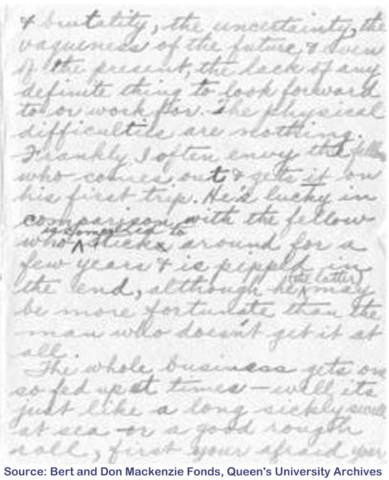 & brutality, the uncertainty, the
vagueness of the future & even
of the present, the lack of any
definite thing to look forward
to or work for. The physical
difficulties are nothing.
Frankly I often envy the fellow
who comes out & gets it on
his first trip. He's lucky in
comparison with the fellow
is compelled to
who ^ stick around for a
few years & is pipped in
(the latter)
the end, although he ^ may
be more fortunate than the
man who doesn't get it at
all.
The whole business gets one
so fed up at times – well its
just like a long sickly swell
at sea or a good rough
roll, first your afraid your
Source: Bert and Don Mackenzie Fonds, Queen's University Archives